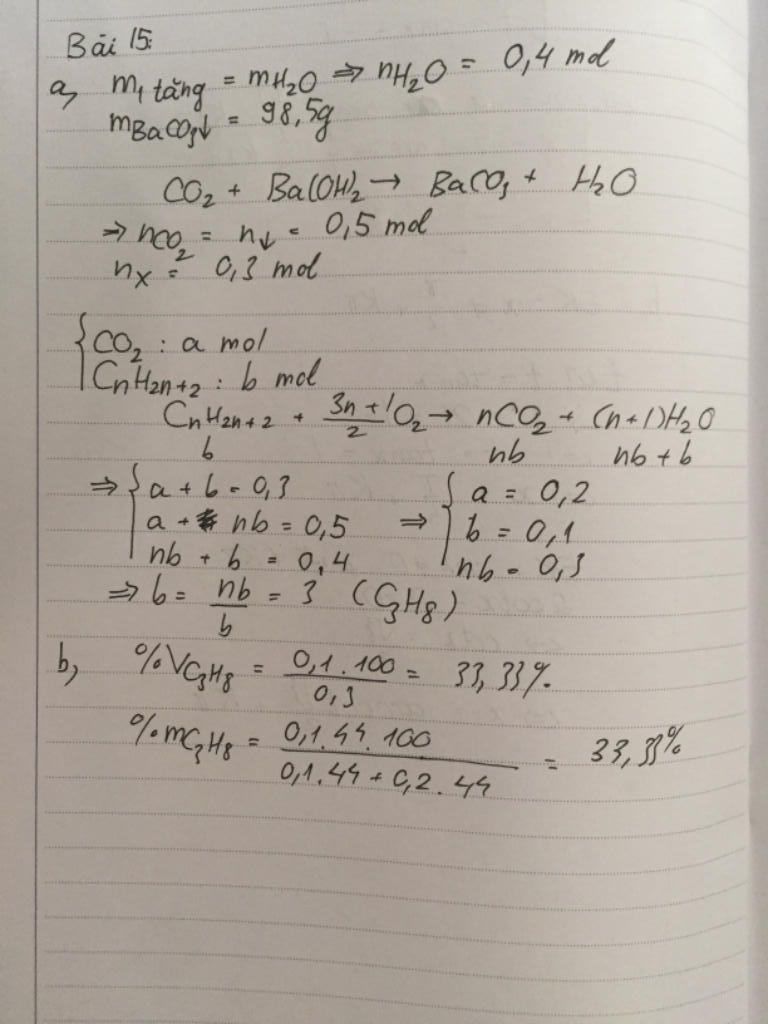 Bài 15:
a, m₁ tăng = mH₂O ⇒ nH₂O = 0,4 mol
mBaCO₃↓ = 98,5g
CO₂ + Ba(OH)₂ → BaCO₃ + H₂O
⇒ nCO₂ = n↓ = 0,5 mol
nX = 0,3 mol
{ CO₂ : a mol
CnH2n+2 : b mol
CnH2n+2 + (3n+1)/2 O₂ → nCO₂ + (n+1)H₂O
b nb nb + b
⇒ { a + b = 0,3 { a = 0,2
a + nb = 0,5 ⇒ b = 0,1
nb + b = 0,4 nb = 0,3
⇒ b = nb/b = 3 (C₃H₈)
b, %VC₃H₈ = 0,1.100/0,3 = 33,33%
%mC₃H₈ = 0,1.44.100/(0,1.44 + 0,2.44) = 33,33%